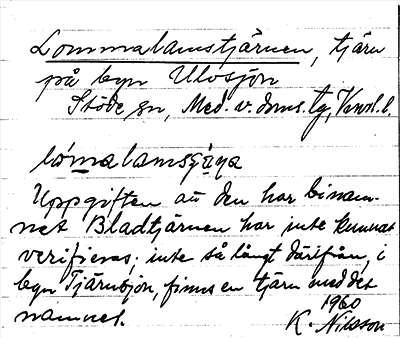 Lommalamstjärnen, tjärn
på byn Ulvsjön
Stöde sn, Med. v. doms. tg, Vnrl. l.
lómalamsʃǟṇa
Uppgiften att den har binam-
net Bladtjärnen har inte kunnat
verifieras; inte så långt därifrån, i
byn Tjärnsjön, finns en tjärn med det
namnet.
1960
K. Nilsson